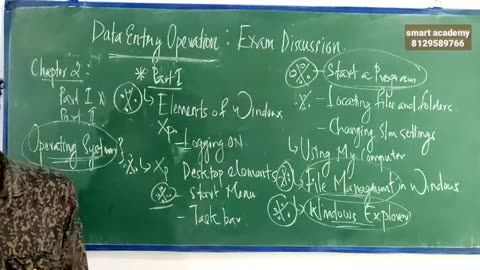 smart academy
8129589766
Data Entry Operation : Exam Discussion
Chapter 2:
Part I
Part II
Operating System
* Part I
Elements of Windows
Xp
- Logging ON
Xp Desktop elements
- Start Menu
- Task bar
Start a Program
- Locating File and Folders
- Changing S/m settings
Using My Computer
File Managment in Windows
Windows Explorer